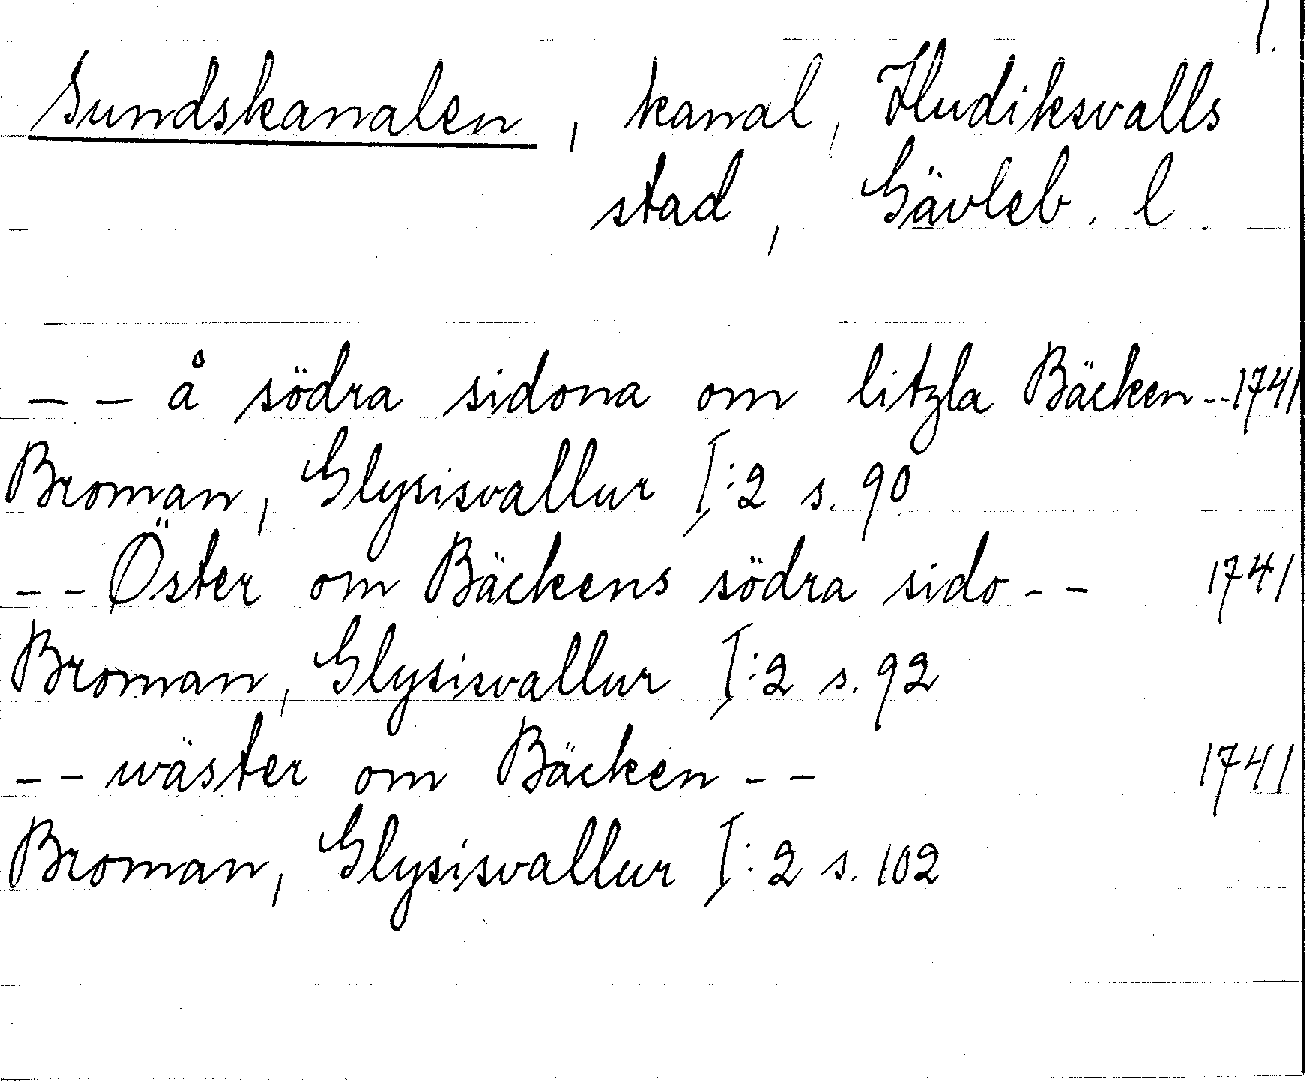 1.
Sundskanalen, kanal, Hudiksvalls
stad, Gävleb. l.
-- å södra sidona om litzla Bäcken -- 1741
Broman, Glysisvallur I:2 s. 90
-- Öster om Bäckens södra sido -- 1741
Broman, Glysisvallur I:2 s. 92
-- wäster om Bäcken -- 1741
Broman, Glysisvallur I:2 s. 102